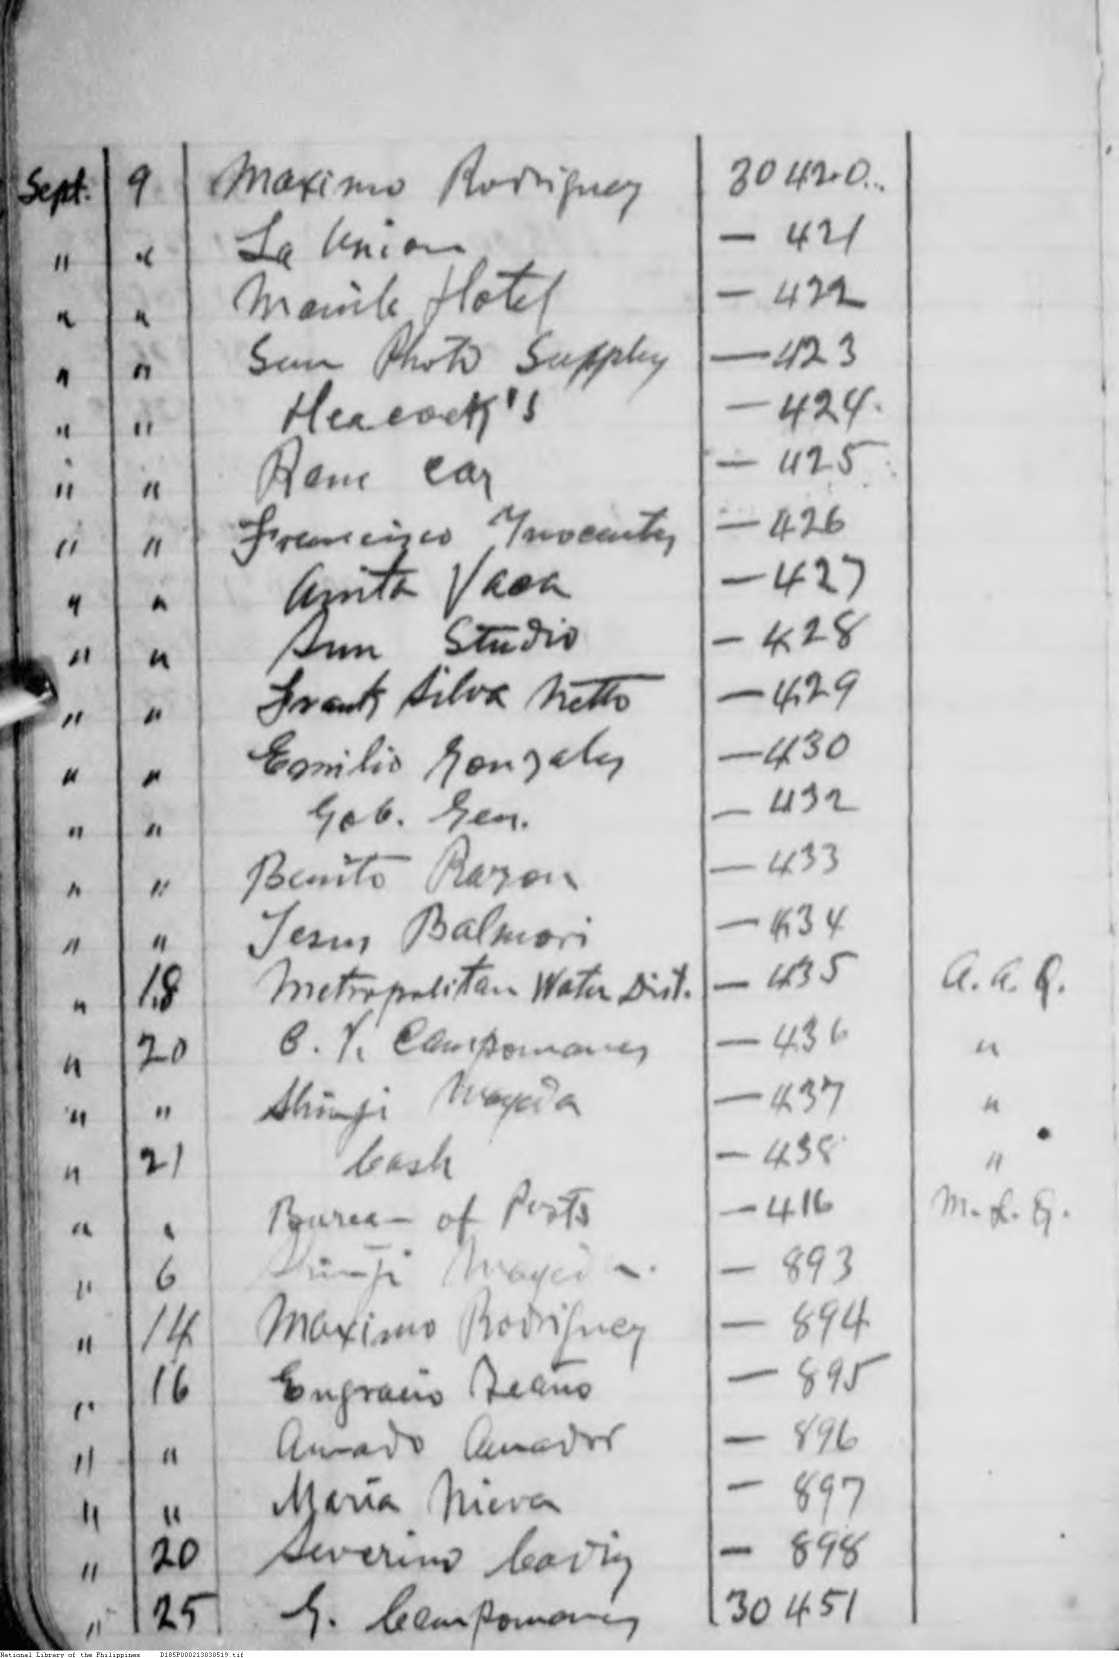 Sept. 9 Maximo Rodriguez 30420..
" " La Union — 421
" " Manila Hotel — 422
" " Sun Photo Supply — 423
" " Heacock's — 424.
" " Rent car — 425
" " Francisco Inocentes — 426
" " Anita Vaca — 427
" " Sun Studio — 428
" " Frank Silva Netto — 429
" " Emilio Gonzales — 430
" " Gob. Gen. — 432
" " Benito Razon — 433
" " Jesus Balmori — 434
" 18 Metropolitan Water Dist. — 435 A. A. Q.
" 20 C. V. Campomanes — 436 "
" " Shinji Mayeda — 437 "
" 21 Cash — 438 "
" " Bureau of Posts — 416 M. L. Q.
" 6 Shinji Mayeda. — 893
" 14 Maximo Rodriguez — 894
" 16 Engracio — 895
" " Amado Amador — 896
" " Maria Nieva — 897
" 20 Severino — 898
" 25 G. Campomanes 30451
National Library of the Philippines D185P000213030519.tif